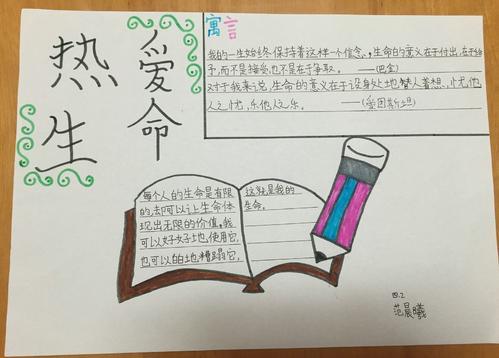 热爱
生命
寓言
我的一生始终保持着这样一个信念,生命的意义在于付出,在于给
予,而不是接受,也不是在于争取。——(巴金)
对于我来说,生命的意义在于设身处地替人着想,忧他
人之忧,乐他人之乐。——(爱因斯坦)
每个人的生命是有限
的,却可以让生命体
现出无限的价值。我
可以好好地,使用它,
也可以白白地,糟蹋它,
这就是我的
生命。
四.2
范晨曦